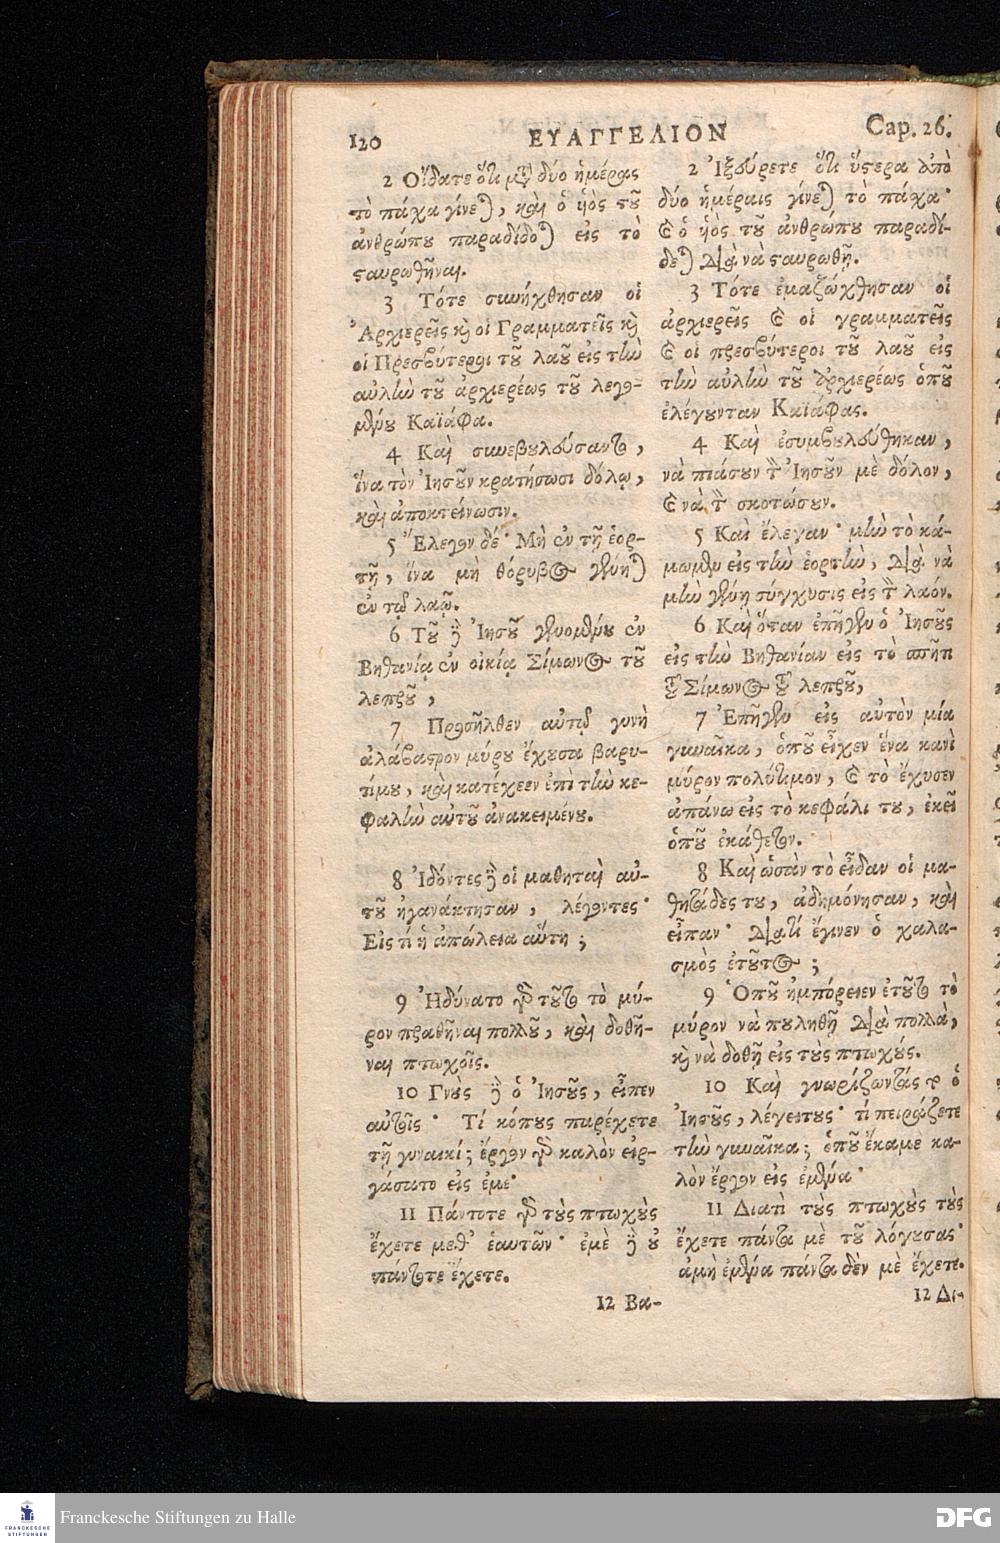 120 ΕΥΑΓΓΕΛΙΟΝ Cap. 26.
2 Οἴδατε ὅτι μετὰ δύο ἡμέρας
τὸ πάχα γίνεται, καὶ ὁ ὑὸς τοῦ
ἀνθρώπου παραδίδοται εἰς τὸ
σαυρωθῆναι.
3 Τότε συνήχθησαν οἱ
Ἀρχιερεῖς καὶ οἱ Γραμματεῖς καὶ
οἱ Πρεσβύτεροι τοῦ λαοῦ εἰς τὴν
αὐλὴν τοῦ ἀρχιερέως τοῦ λεγο-
μένου Καϊάφα.
4 Καὶ συνεβουλεύσαντο,
ἵνα τὸν Ἰησοῦν κρατήσωσι δόλῳ,
καὶ ἀποκτείνωσιν.
5 Ἔλεγον δέ· Μὴ ἐν τῇ ἑορ-
τῇ, ἵνα μὴ θόρυβος γένηται
ἐν τῷ λαῷ.
6 Τοῦ δὲ Ἰησοῦ γενομένου ἐν
Βηθανίᾳ ἐν οἰκίᾳ Σίμωνος τοῦ
λεπροῦ,
7 Προσῆλθεν αὐτῷ γυνὴ
ἀλάβαστρον μύρου ἔχουσα βαρυ-
τίμου, καὶ κατέχεεν ἐπὶ τὴν κε-
φαλὴν αὐτοῦ ἀνακειμένου.
8 Ἰδόντες δὲ οἱ μαθηταὶ αὐ-
τοῦ ἠγανάκτησαν, λέγοντες·
Εἰς τί ἡ ἀπώλεια αὕτη;
9 Ἠδύνατο γὰρ τοῦτο τὸ μύ-
ρον πραθῆναι πολλοῦ, καὶ δοθῆ-
ναι πτωχοῖς.
10 Γνοὺς δὲ ὁ Ἰησοῦς, εἶπεν
αὐτοῖς· Τί κόπους παρέχετε
τῇ γυναικί; ἔργον γὰρ καλὸν εἰρ-
γάσατο εἰς ἐμέ·
11 Πάντοτε γὰρ τοὺς πτωχοὺς
ἔχετε μεθ' ἑαυτῶν· ἐμὲ δὲ οὐ
πάντοτε ἔχετε.
12 Βα-
2 Ἰξεύρετε ὅτι ὕστερα ἀπὸ
δύο ἡμέραις γίνεται τὸ πάχα·
καὶ ὁ ὑὸς τοῦ ἀνθρώπου παραδί-
δεται διὰ νὰ σαυρωθῇ.
3 Τότε ἐμαζώχθησαν οἱ
ἀρχιερεῖς καὶ οἱ γραμματεῖς
καὶ οἱ πρεσβύτεροι τοῦ λαοῦ εἰς
τὴν αὐλὴν τοῦ ἀρχιερέως ὁποῦ
ἐλέγουνταν Καϊάφας.
4 Καὶ ἐσυμβουλεύθηκαν,
νὰ πιάσουν τὸν Ἰησοῦν μὲ δόλον,
καὶ νὰ τὸν σκοτώσουν.
5 Καὶ ἔλεγαν· μὴν τὸ κά-
μωμεν εἰς τὴν ἑορτὴν, διὰ νὰ
μὴν γένῃ σύγχυσις εἰς τὸν λαόν.
6 Καὶ ὅταν ἐπῆγεν ὁ Ἰησοῦς
εἰς τὴν Βηθανίαν εἰς τὸ σπῆτι
τοῦ Σίμωνος τοῦ λεπροῦ,
7 Ἐπῆγεν εἰς αὐτὸν μία
γυναῖκα, ὁποῦ εἶχεν ἕνα κανὶ
μύρον πολύτιμον, καὶ τὸ ἔχυσεν
ἀπάνω εἰς τὸ κεφάλι του, ἐκεῖ
ὁποῦ ἐκάθετον.
8 Καὶ ὡσὰν τὸ εἶδαν οἱ μα-
θητάδες του, ἀδημόνησαν, καὶ
εἶπαν· Διατί ἔγινεν ὁ χαλα-
σμὸς ἐτοῦτος;
9 Ὁποῦ ἠμπόρειεν ἐτοῦτο τὸ
μύρον νὰ πουληθῇ διὰ πολλὰ,
καὶ νὰ δοθῇ εἰς τοὺς πτωχούς.
10 Καὶ γνωρίζωντάς το ὁ
Ἰησοῦς, λέγειτους· τί πειράζετε
τὴν γυναῖκα; ὁποῦ ἔκαμε κα-
λὸν ἔργον εἰς ἐμένα·
11 Διατὶ τοὺς πτωχοὺς τοὺς
ἔχετε πάντα μὲ τοῦ λόγουσας·
ἀμὴ ἐμένα πάντα δὲν μὲ ἔχετε.
12 Δι-
FRANCKESCHE STIFTUNGEN
Franckesche Stiftungen zu Halle
DFG